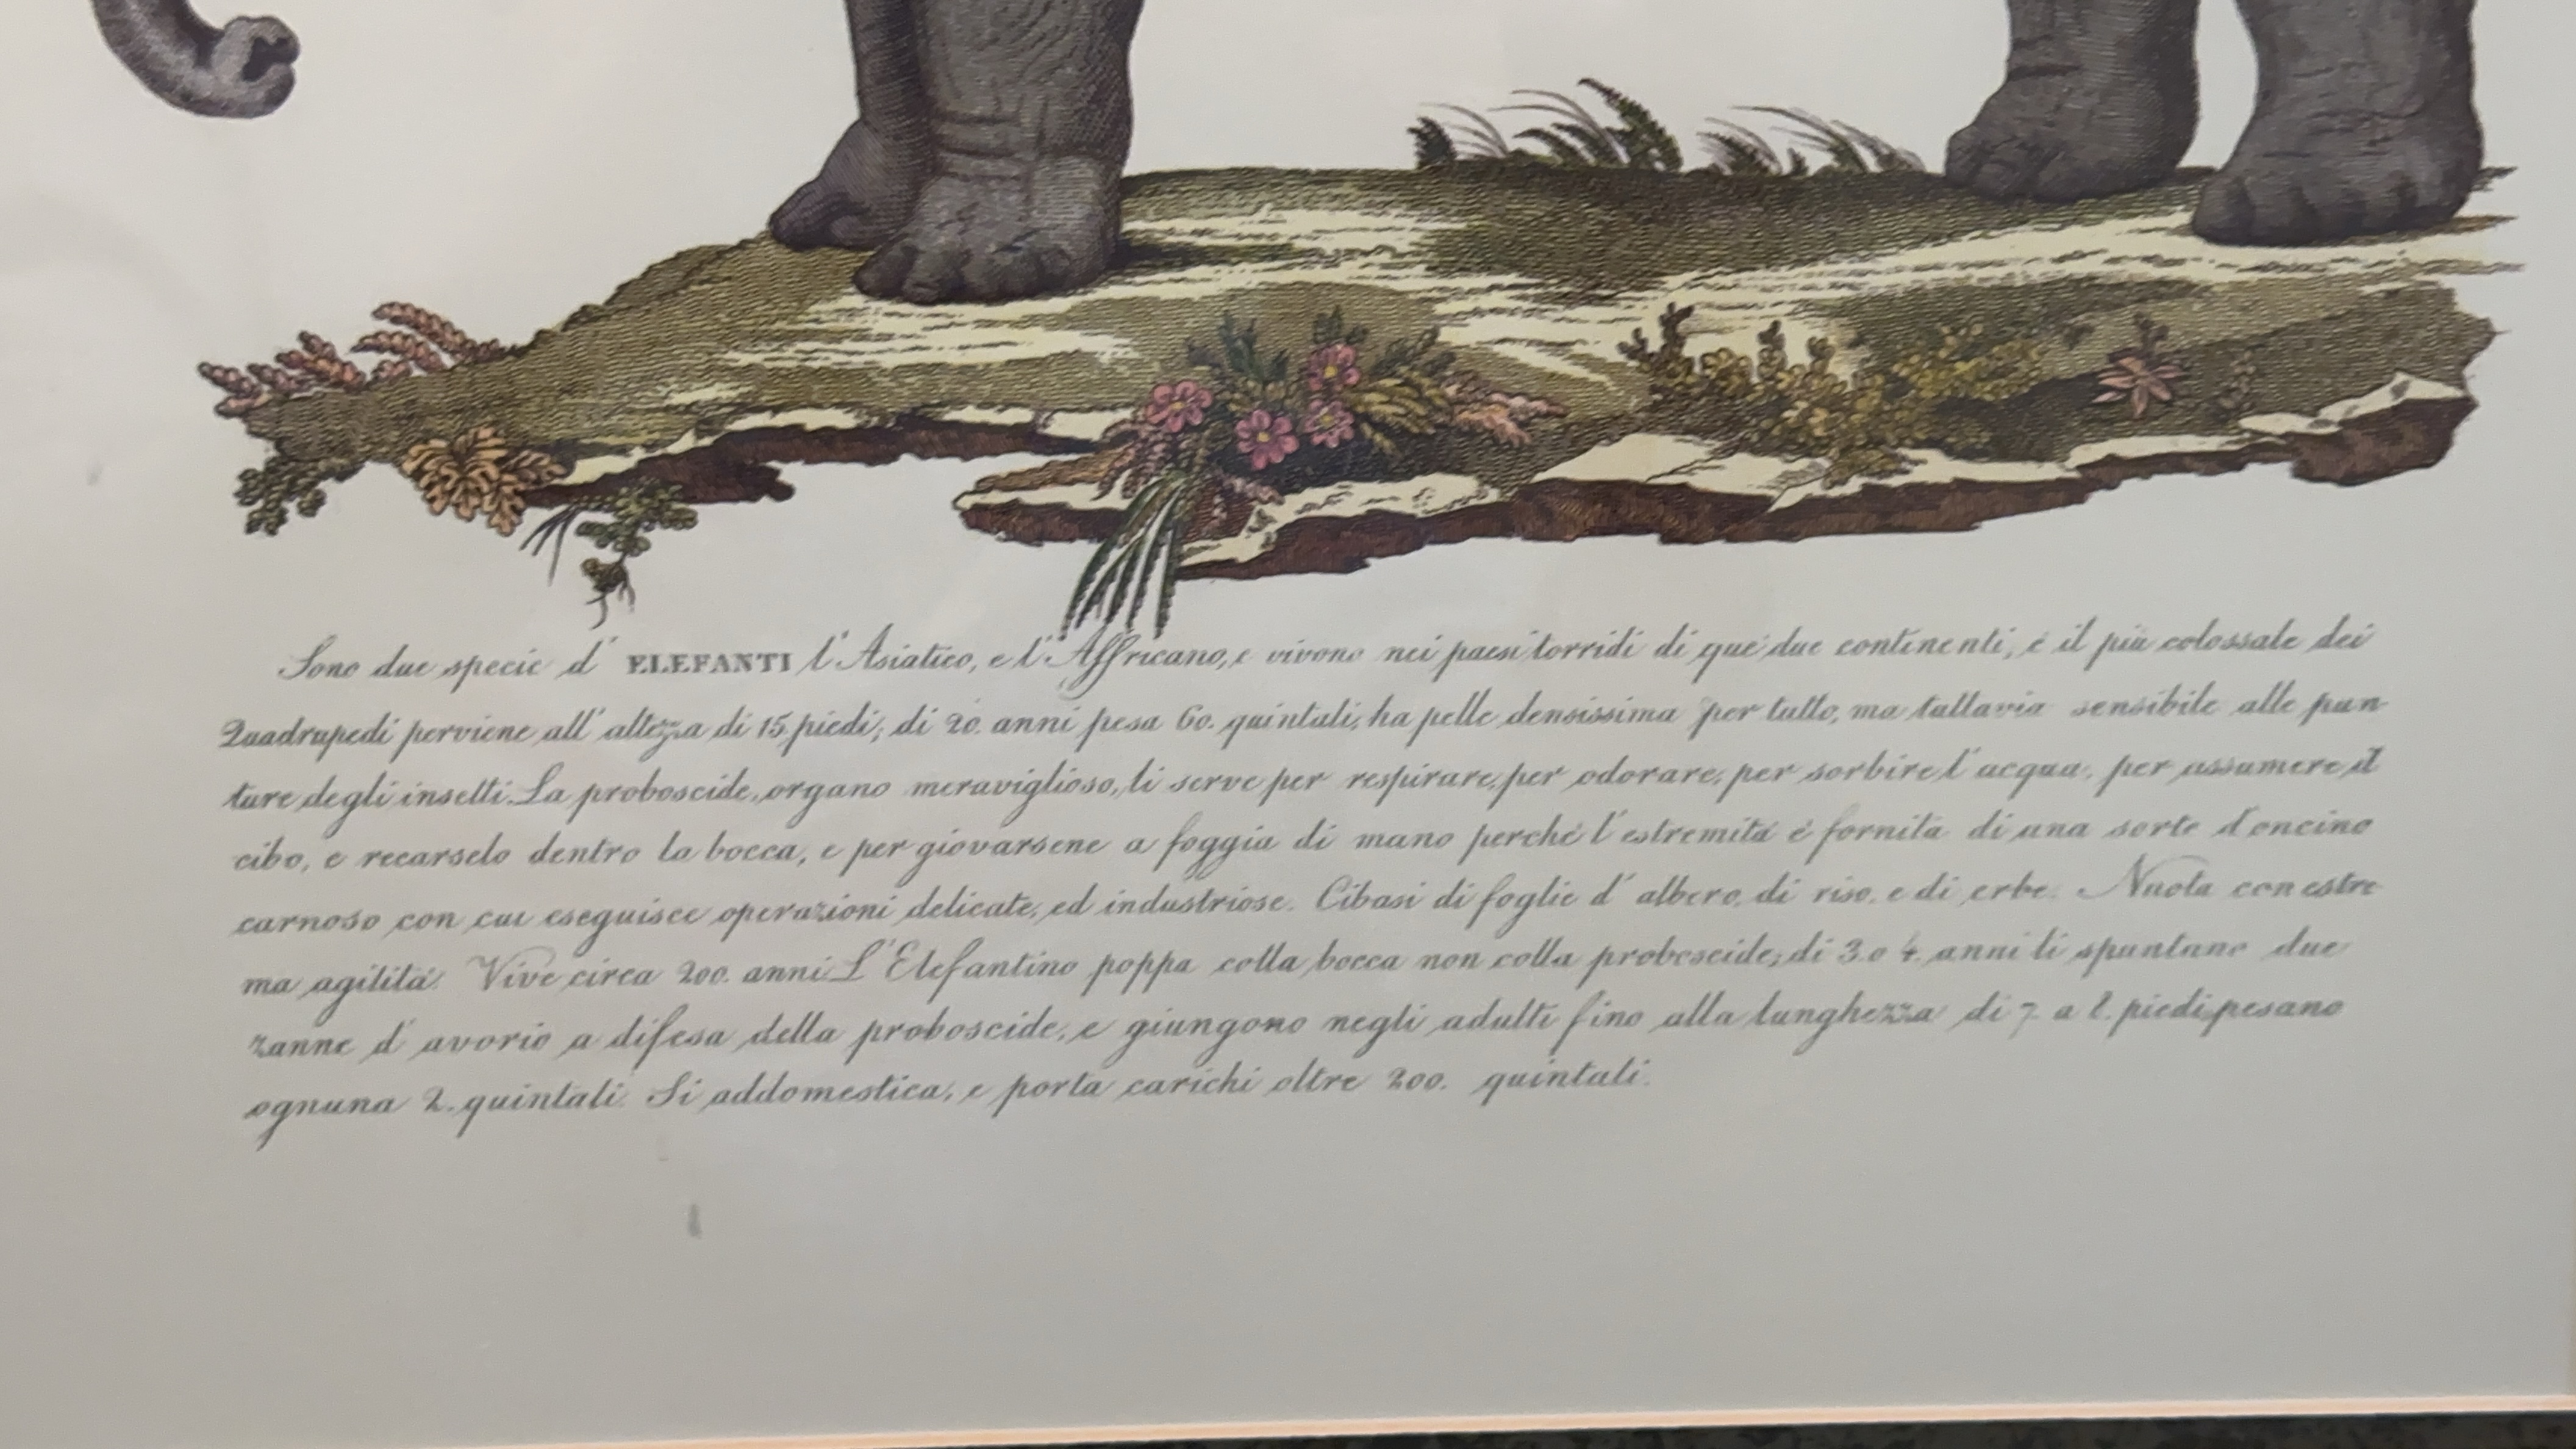 Sono due specie d' ELEFANTI l'Asiatico, e l'Affricano, e vivono nei paesi torridi di que' due continenti, é il più colossale dei
Quadrupedi perviene all' altezza di 15 piedi; di 20. anni pesa 60. quintali, ha pelle densissima per tutto, ma tuttavia sensibile alle pun-
ture degli insetti. La proboscide, organo meraviglioso, li serve per respirare, per odorare, per sorbire l' acqua, per assumere il
cibo, e recarselo dentro la bocca, e per giovarsene a foggia di mano perché l' estremitá é fornita di una sorte d'oncino
carnoso con cui eseguisce operazioni delicate, ed industriose. Cibasi di foglie d' albero, di riso, e di erbe. Nuota con estre-
ma agilitá. Vive circa 200. anni. L' Elefantino poppa colla bocca non colla proboscide; di 3 o 4. anni li spuntano due
zanne d' avorio a difesa della proboscide, e giungono negli adulti fino alla lunghezza di 7. a 8. piedi, pesano
ognuna 2. quintali. Si addomestica, e porta carichi oltre 200. quintali.